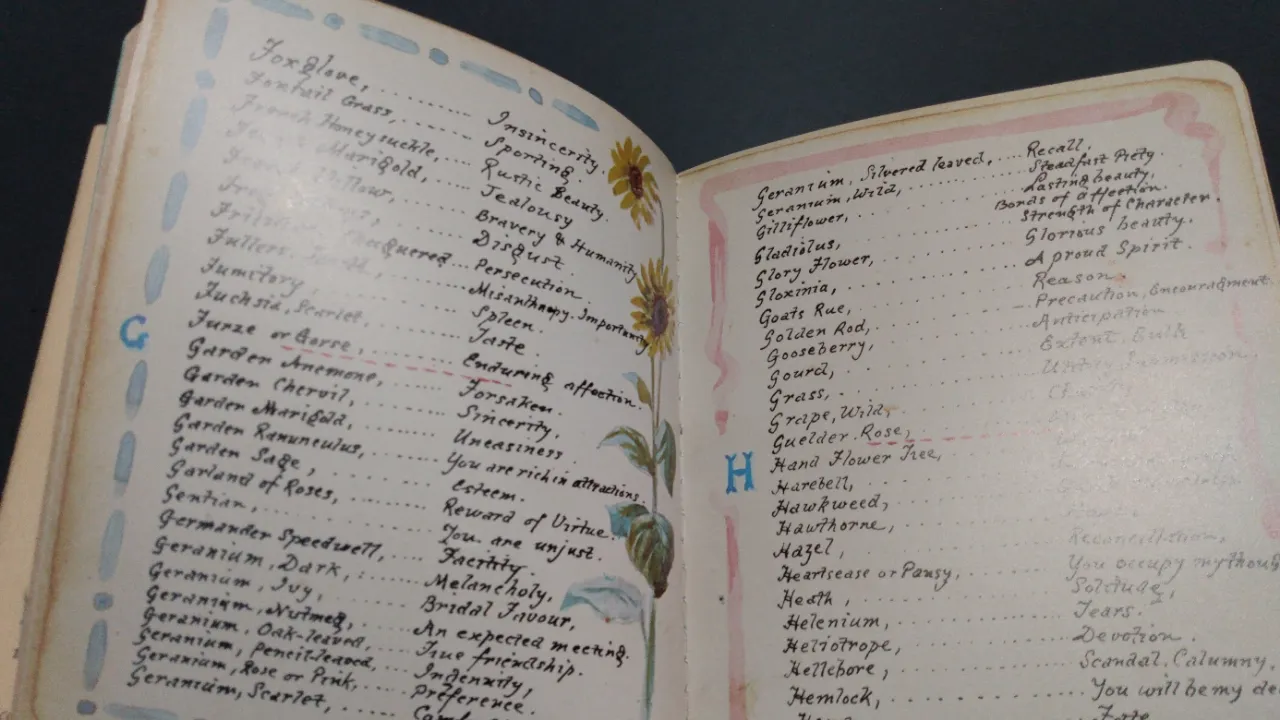 Foxglove, .......... Insincerity.
Foxtail Grass, ...... Sporting.
French Honeysuckle, .... Rustic Beauty.
Marigold, .... Jealousy
Willow, ...... Bravery & Humanity
Disgust.
Chequered ... Persecution.
Fullers Misanthropy. Importunity
Fumitory ...... Spleen.
Fuchsia, Scarlet ...... Taste.
Furze or Gorse, ...... Enduring affection.
G
Garden Anemone, ...... Forsaken.
Garden Chervil, ...... Sincerity.
Garden Marigold, ...... Uneasiness.
Garden Ranunculus, ...... You are rich in attractions.
Garden Sage, ...... Esteem.
Garland of Roses, ...... Reward of Virtue.
Gentian, ...... You are unjust.
Germander Speedwell, .... Facility.
Geranium, Dark, ...... Melancholy,
Geranium, Ivy, ...... Bridal Favour,
Geranium, Nutmeg, ...... An expected meeting.
Geranium, Oak-leaved, .... True friendship.
Geranium, Pencil-leaved, .... Ingenuity,
Geranium, Rose or Pink, .... Preference.
Geranium, Scarlet, ......
Geranium, Silvered leaved, ... Recall,
Geranium, Wild, ...... Steadfast Piety.
Gilliflower, ...... Lasting beauty,
Bonds of affection.
Gladiolus, ...... Strength of Character.
Glory Flower, ...... Glorious beauty.
Gloxinia, ...... A proud Spirit.
Goats Rue, ...... Reason.
Golden Rod, ...... Precaution, Encouragement.
Gooseberry, ...... Anticipation
Gourd, ...... Extent, Bulk
Grass, ......
Grape, Wild,
Guelder Rose,
H
Hand Flower Tree,
Harebell, ......
Hawkweed, ......
Hawthorne, ......
Hazel, ...... Reconciliation,
Heartsease or Pansy, ...... You occupy my though
Heath, ...... Solitude,
Helenium, ...... Tears.
Heliotrope, ...... Devotion.
Hellebore, ...... Scandal, Calumny.
Hemlock, ...... You will be my de
Fate